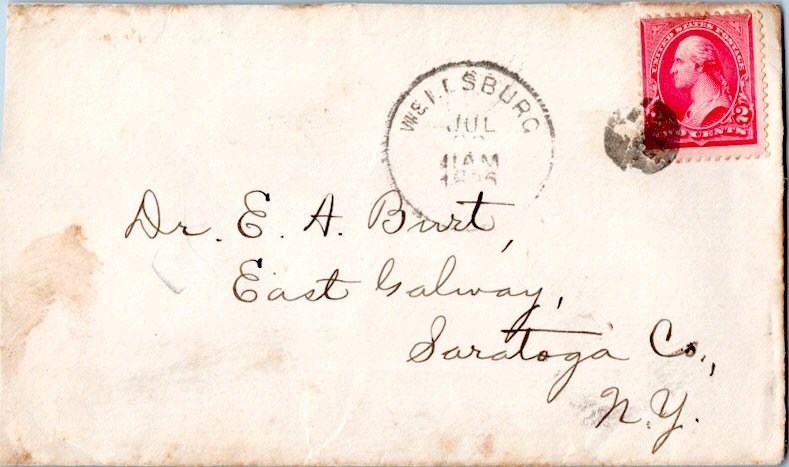 UNITED STATES POSTAGE
2 2
TWO CENTS
WELLSBURG
JUL
11 AM
Dr. E. A. Burt,
East Galway,
Saratoga Co.,
N.Y.